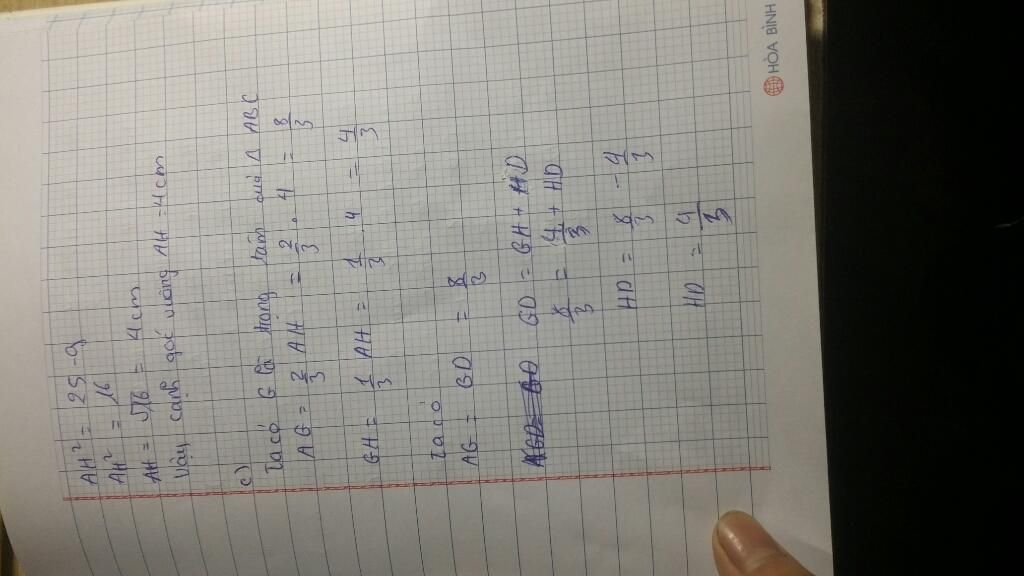 AH² = 25 - 9
AH² = 16
AH = √16 = 4cm
Vậy cạnh góc vuông AH = 4cm
c)
Ta có G là trọng tâm của Δ ABC
AG = 2/3 AH = 2/3 . 4 = 8/3
GH = 1/3 AH = 1/3 . 4 = 4/3
Ta có
AG = GD = 8/3
GD = GH + HD
8/3 = 4/3 + HD
HD = 8/3 - 4/3
HD = 4/3
HÒA BÌNH